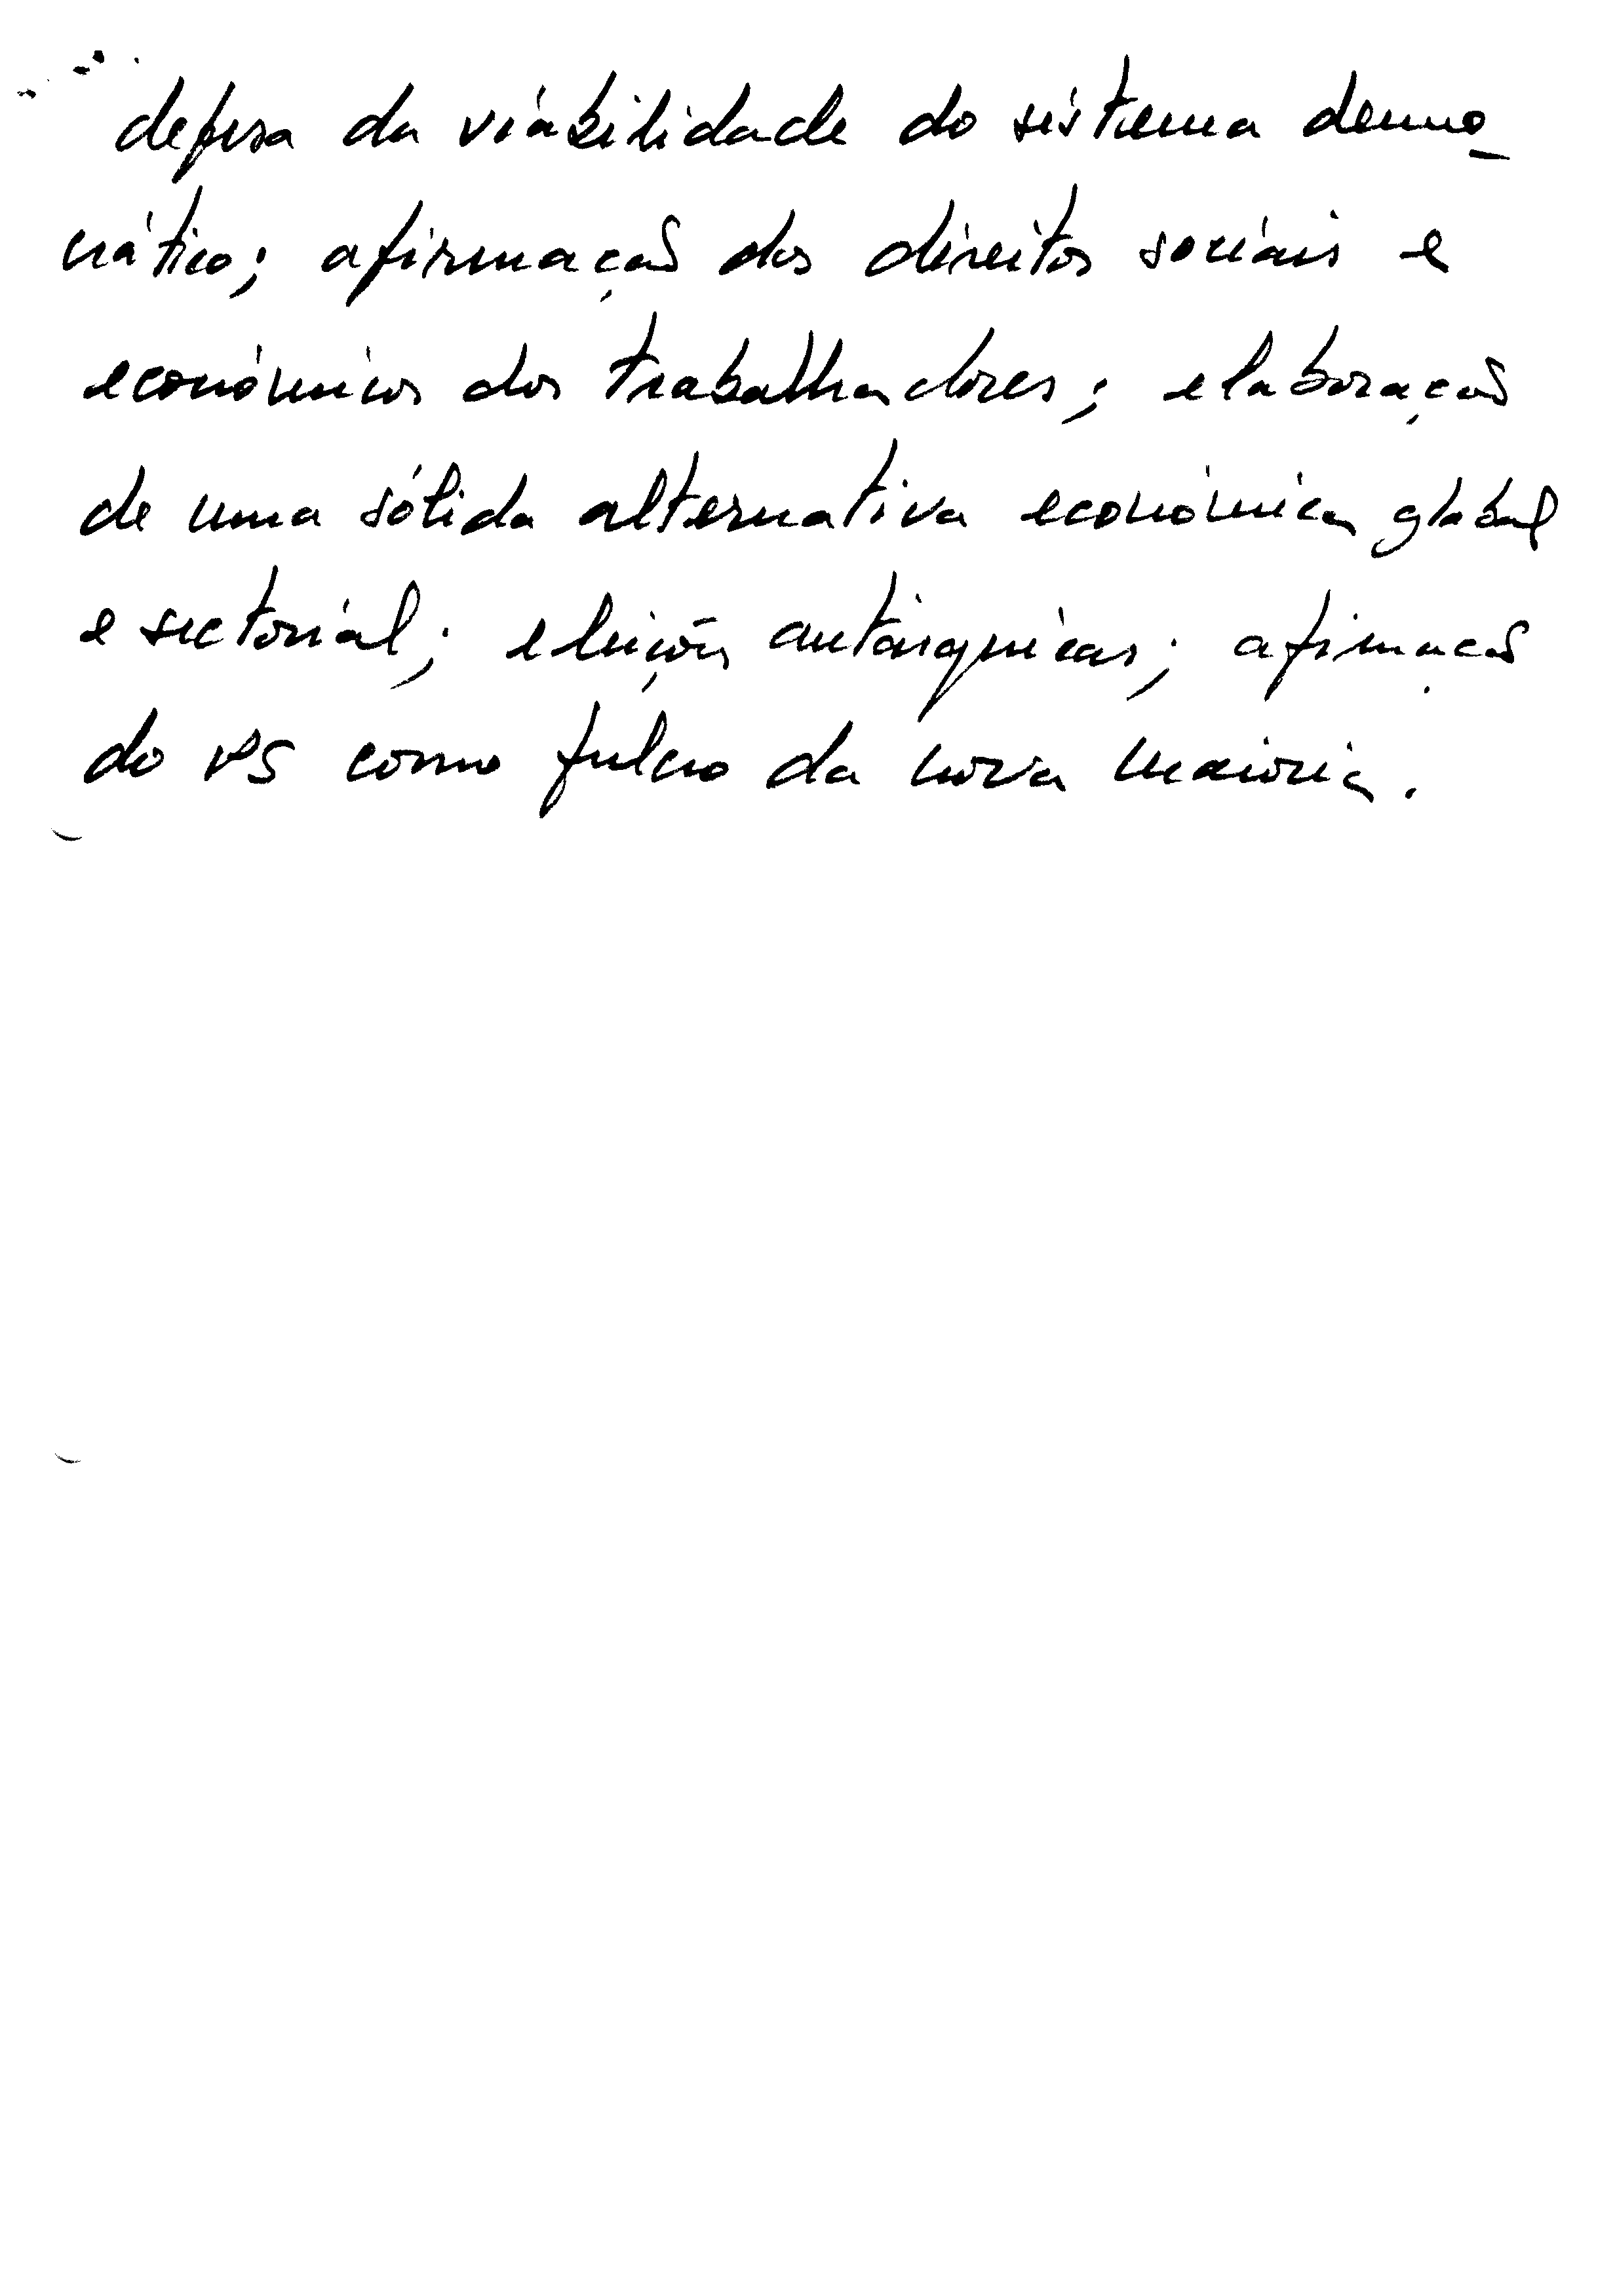 defesa da viabilidade do sistema demo-
crático; afirmação dos direitos sociais e
económicos dos trabalhadores; elaboração
de uma sólida alternativa económica global
e sectorial; eleições autárquicas; afirmação
do PS como fulcro da nova maioria.